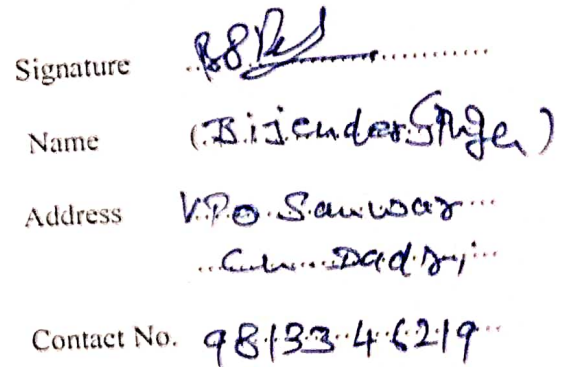 Signature
Name (Bijender Singh)
Address V.P.O Sanwar
Ch. Dadri
Contact No. 9813346219